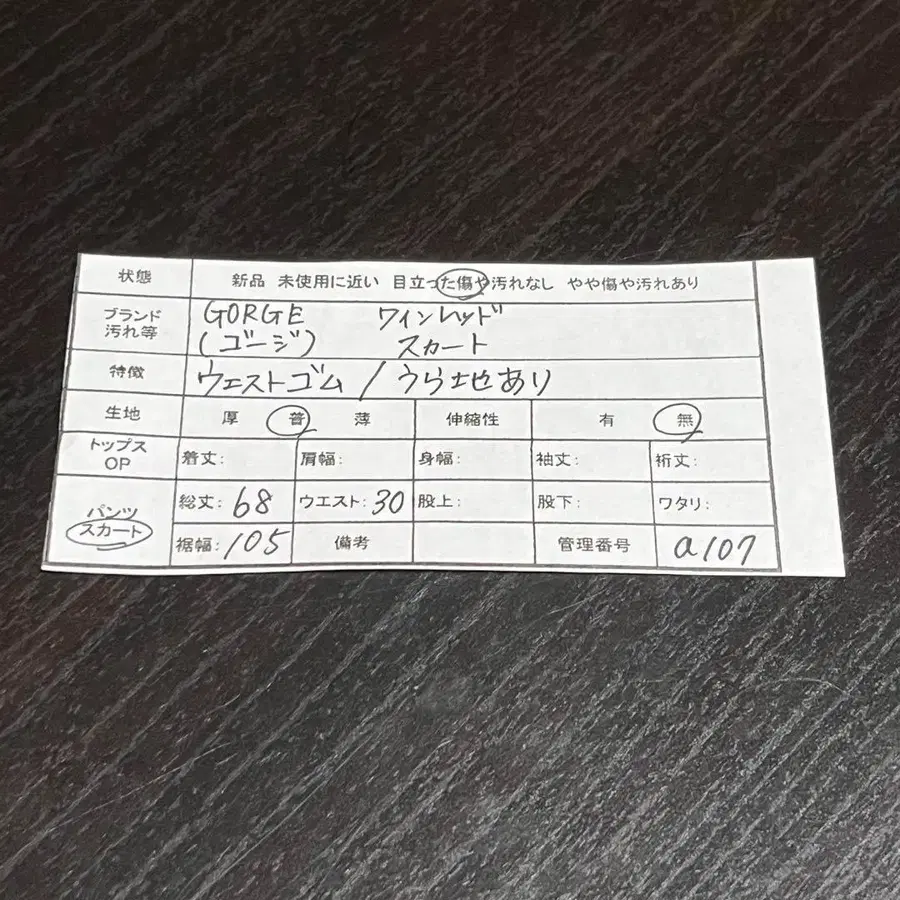 状態 新品 未使用に近い 目立った傷や汚れなし やや傷や汚れあり
ブランド 汚れ等 GORGE ワインレッド
(ゴージ) スカート
特徴 ウエストゴム / うら地あり
生地 厚 普 薄 伸縮性 有 無
トップス OP 着丈: 肩幅: 身幅: 袖丈: 裄丈:
パンツ スカート 総丈: 68 ウエスト: 30 股上: 股下: ワタリ:
裾幅: 105 備考 管理番号 a107